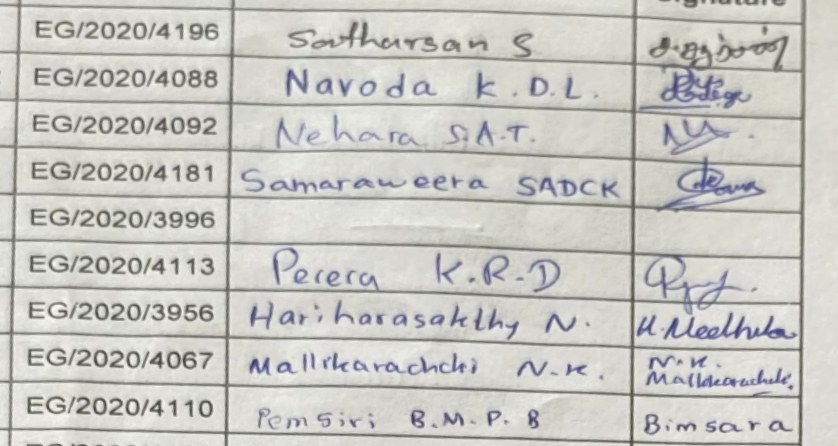 Signature
EG/2020/4196 Satharsan S
EG/2020/4088 Navoda K.D.L.
EG/2020/4092 Nehara S.A.T.
EG/2020/4181 Samaraweera SADCK
EG/2020/3996
EG/2020/4113 Perera K.R.D
EG/2020/3956 Hariharasakthy N.
EG/2020/4067 Mallikarachchi N.K. N.K.
Mallikarachchi
EG/2020/4110 Pemsiri B.M.P.B Bimsara